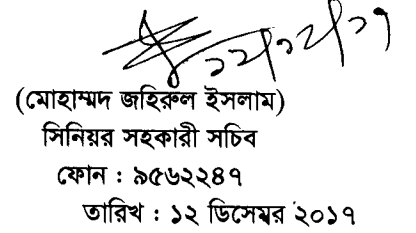 ১২/১২/১৭
(মোহাম্মদ জহিরুল ইসলাম)
সিনিয়র সহকারী সচিব
ফোন : ৯৫৬২২৪৭
তারিখ : ১২ ডিসেম্বর ২০১৭